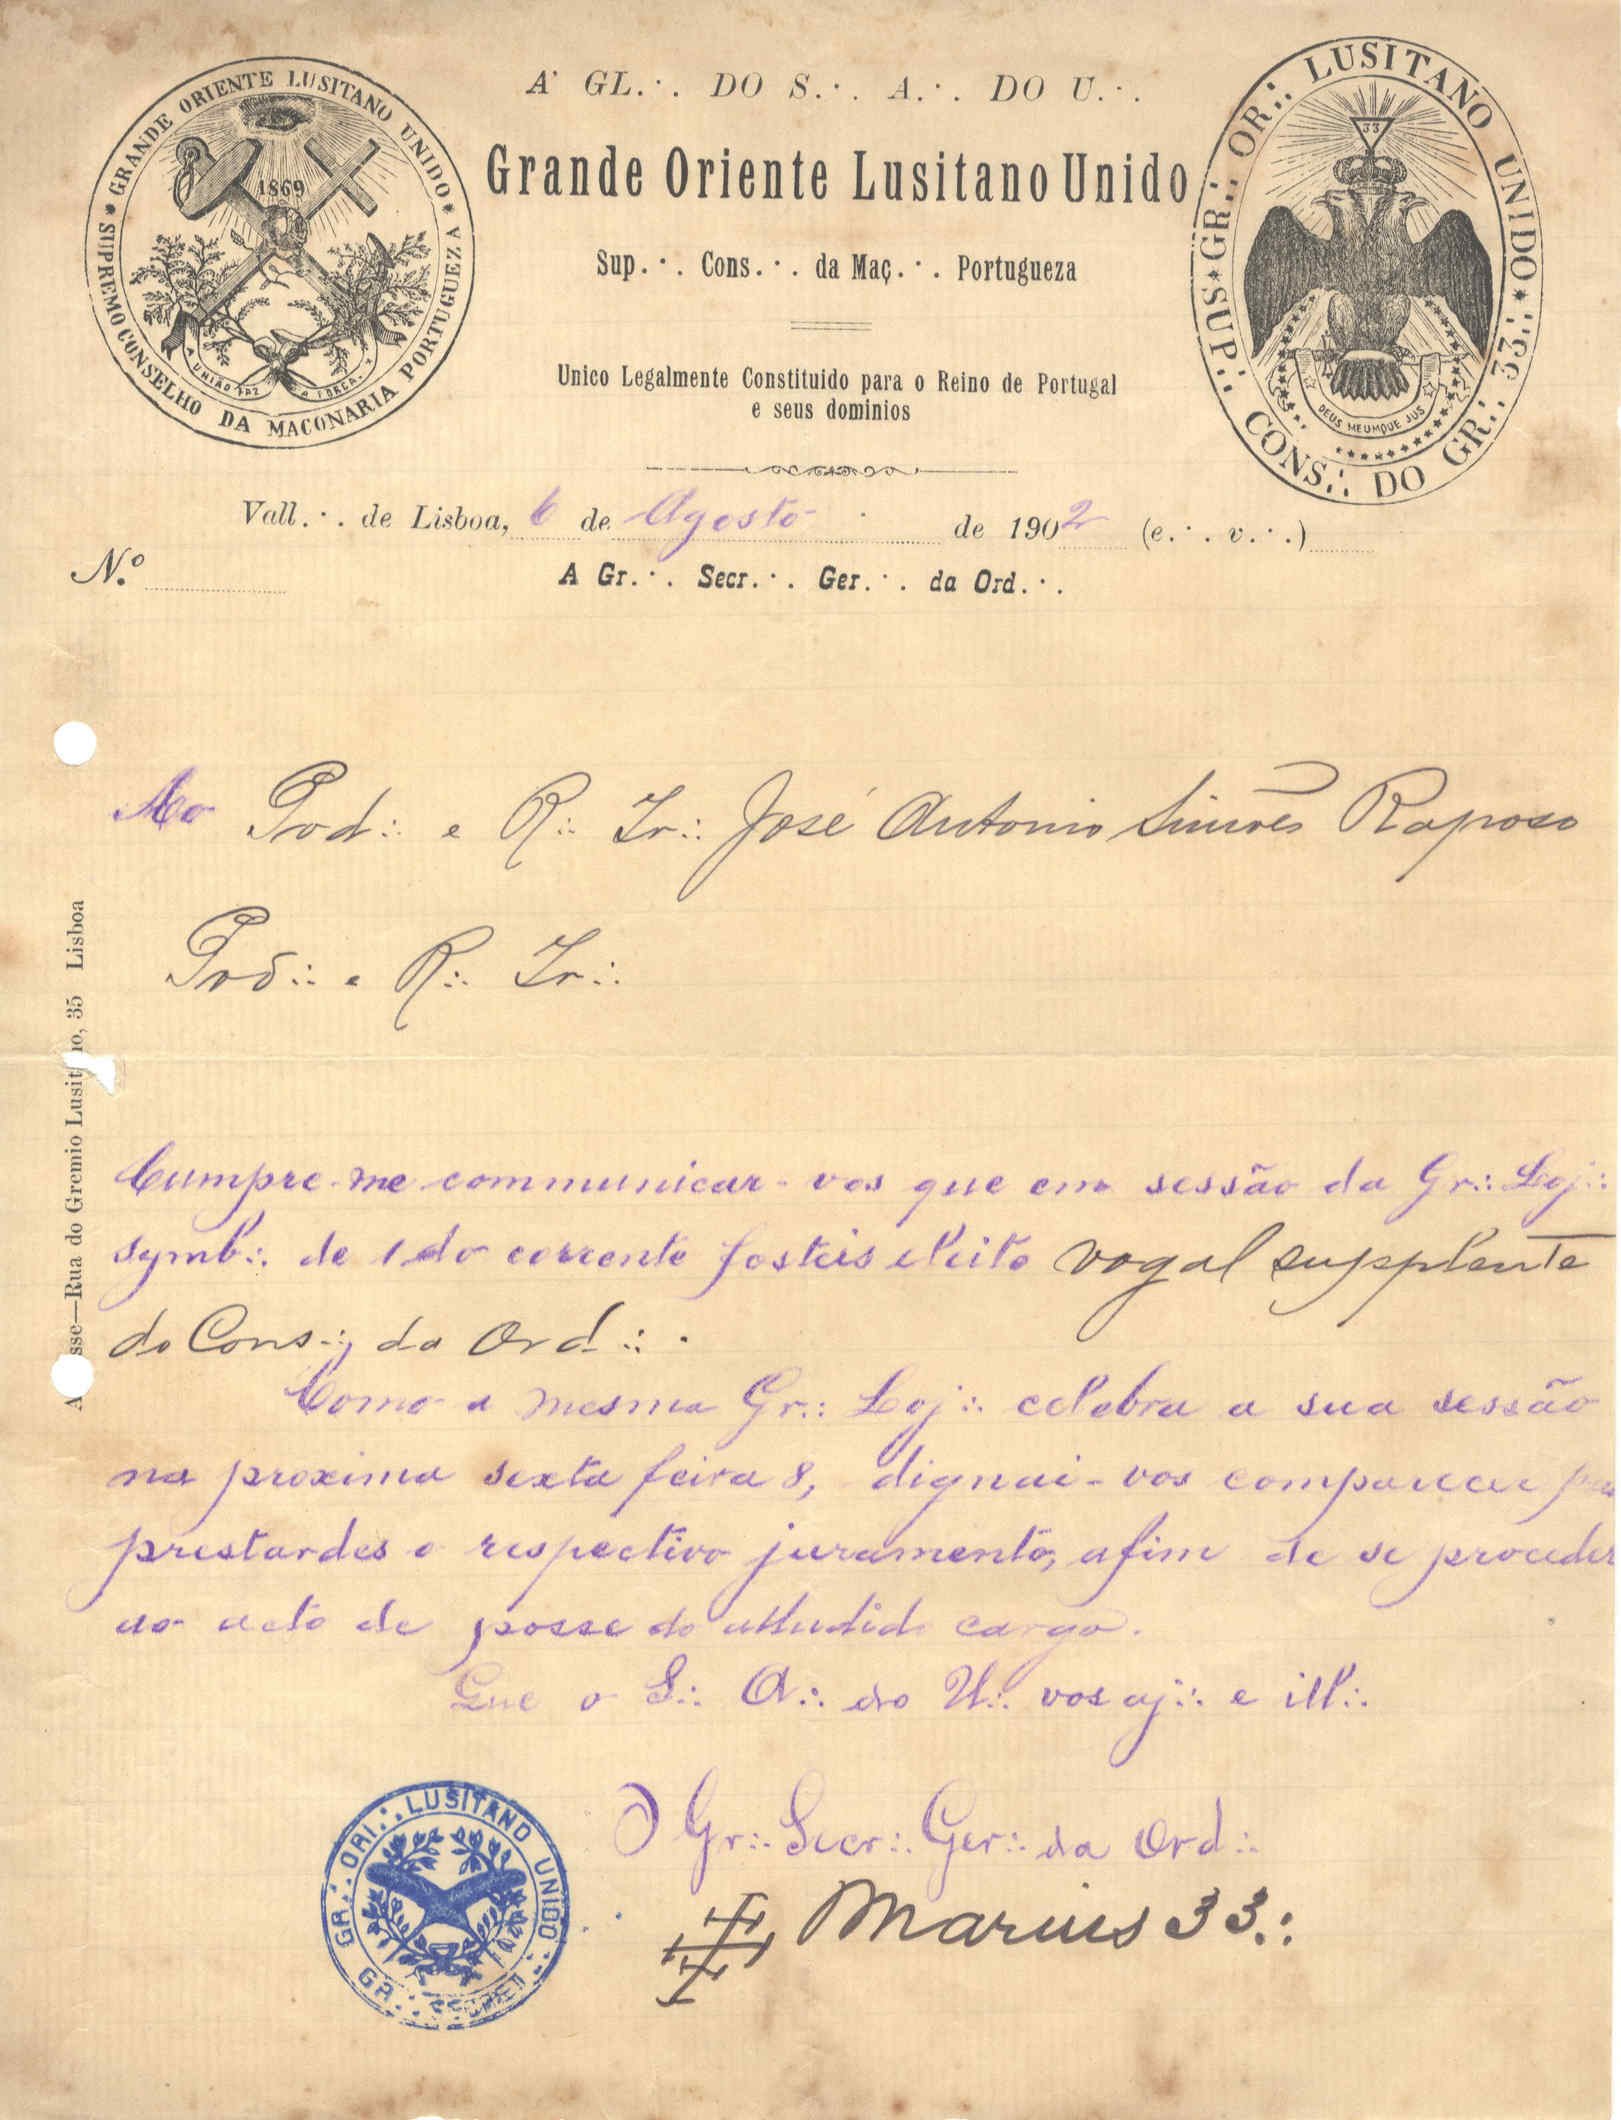 GRANDE ORIENTE LUSITANO UNIDO
SUPREMO CONSELHO DA MACONARIA PORTUGUEZA
1869
A UNIÃO FAZ A FORÇA
A' GL.·. DO S.·. A.·. DO U.·.
Grande Oriente Lusitano Unido
Sup.·. Cons.·. da Maç.·. Portugueza
Unico Legalmente Constituido para o Reino de Portugal
e seus dominios
SUP.·. CONS.·. DO GR.·. 33.·.
GR.·. OR.·. LUSITANO UNIDO
33
DEUS MEUMQUE JUS
Vall.·. de Lisboa, 6 de Agosto de 1902 (e.·. v.·.)
N.º
A Gr.·. Secr.·. Ger.·. da Ord.·.
Ao Pod.·. e R.·. Ir.·. José Antonio Simões Raposo
Pod.·. e R.·. Ir.·.
Cumpre-me communicar-vos que em sessão da Gr.·. Loj.·.
symb.·. de 1 do corrente fosteis eleito vogal supplente
do Cons.·. da Ord.·.
Como a mesma Gr.·. Loj.·. celebra a sua sessão
na proxima sexta feira 8, dignai-vos comparecer para
prestardes o respectivo juramento, afim de se proceder
ao acto de posse do alludido cargo.
Que o S.·. A.·. do U.·. vos aj.·. e ill.·.
O Gr.·. Secr.·. Ger.·. da Ord.·.
Marius 33.·.
GR.·. ORI.·. LUSITANO UNIDO
GR.·. SECRET.·.
sse—Rua do Gremio Lusit no, 35 Lisboa